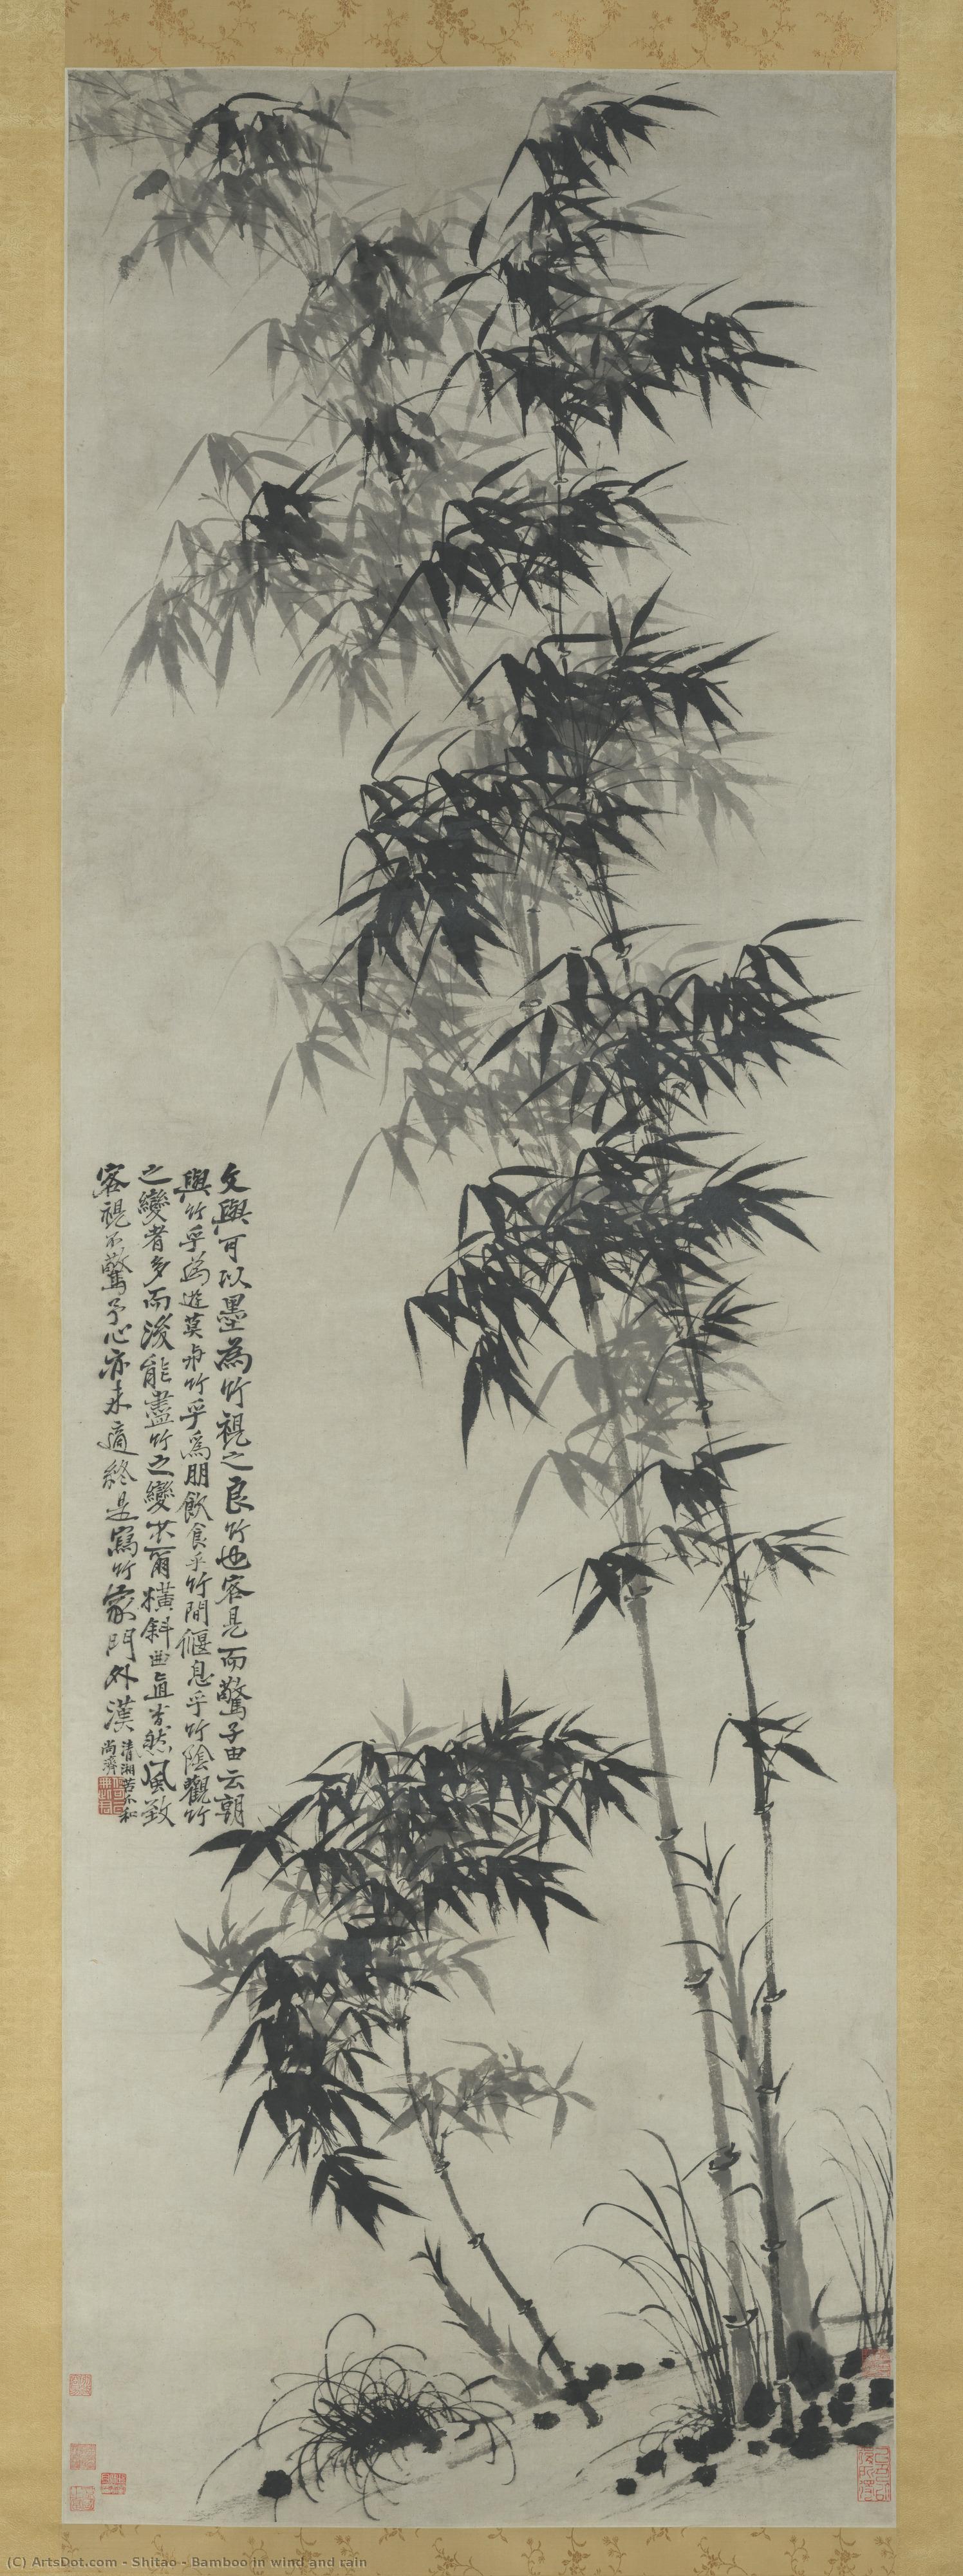 文與可以墨為竹視之良竹也客見而驚子由云朝
與竹乎為遊莫與竹乎為朋飲食乎竹間偃息乎竹陰觀竹
之變者多而後能盡竹之變其爾橫斜曲直杳然風致
客視不驚予心亦未適終是寫竹家門外漢
清湘苦瓜和
尚濟
(C) ArtsDot.com - Shitao - Bamboo in wind and rain